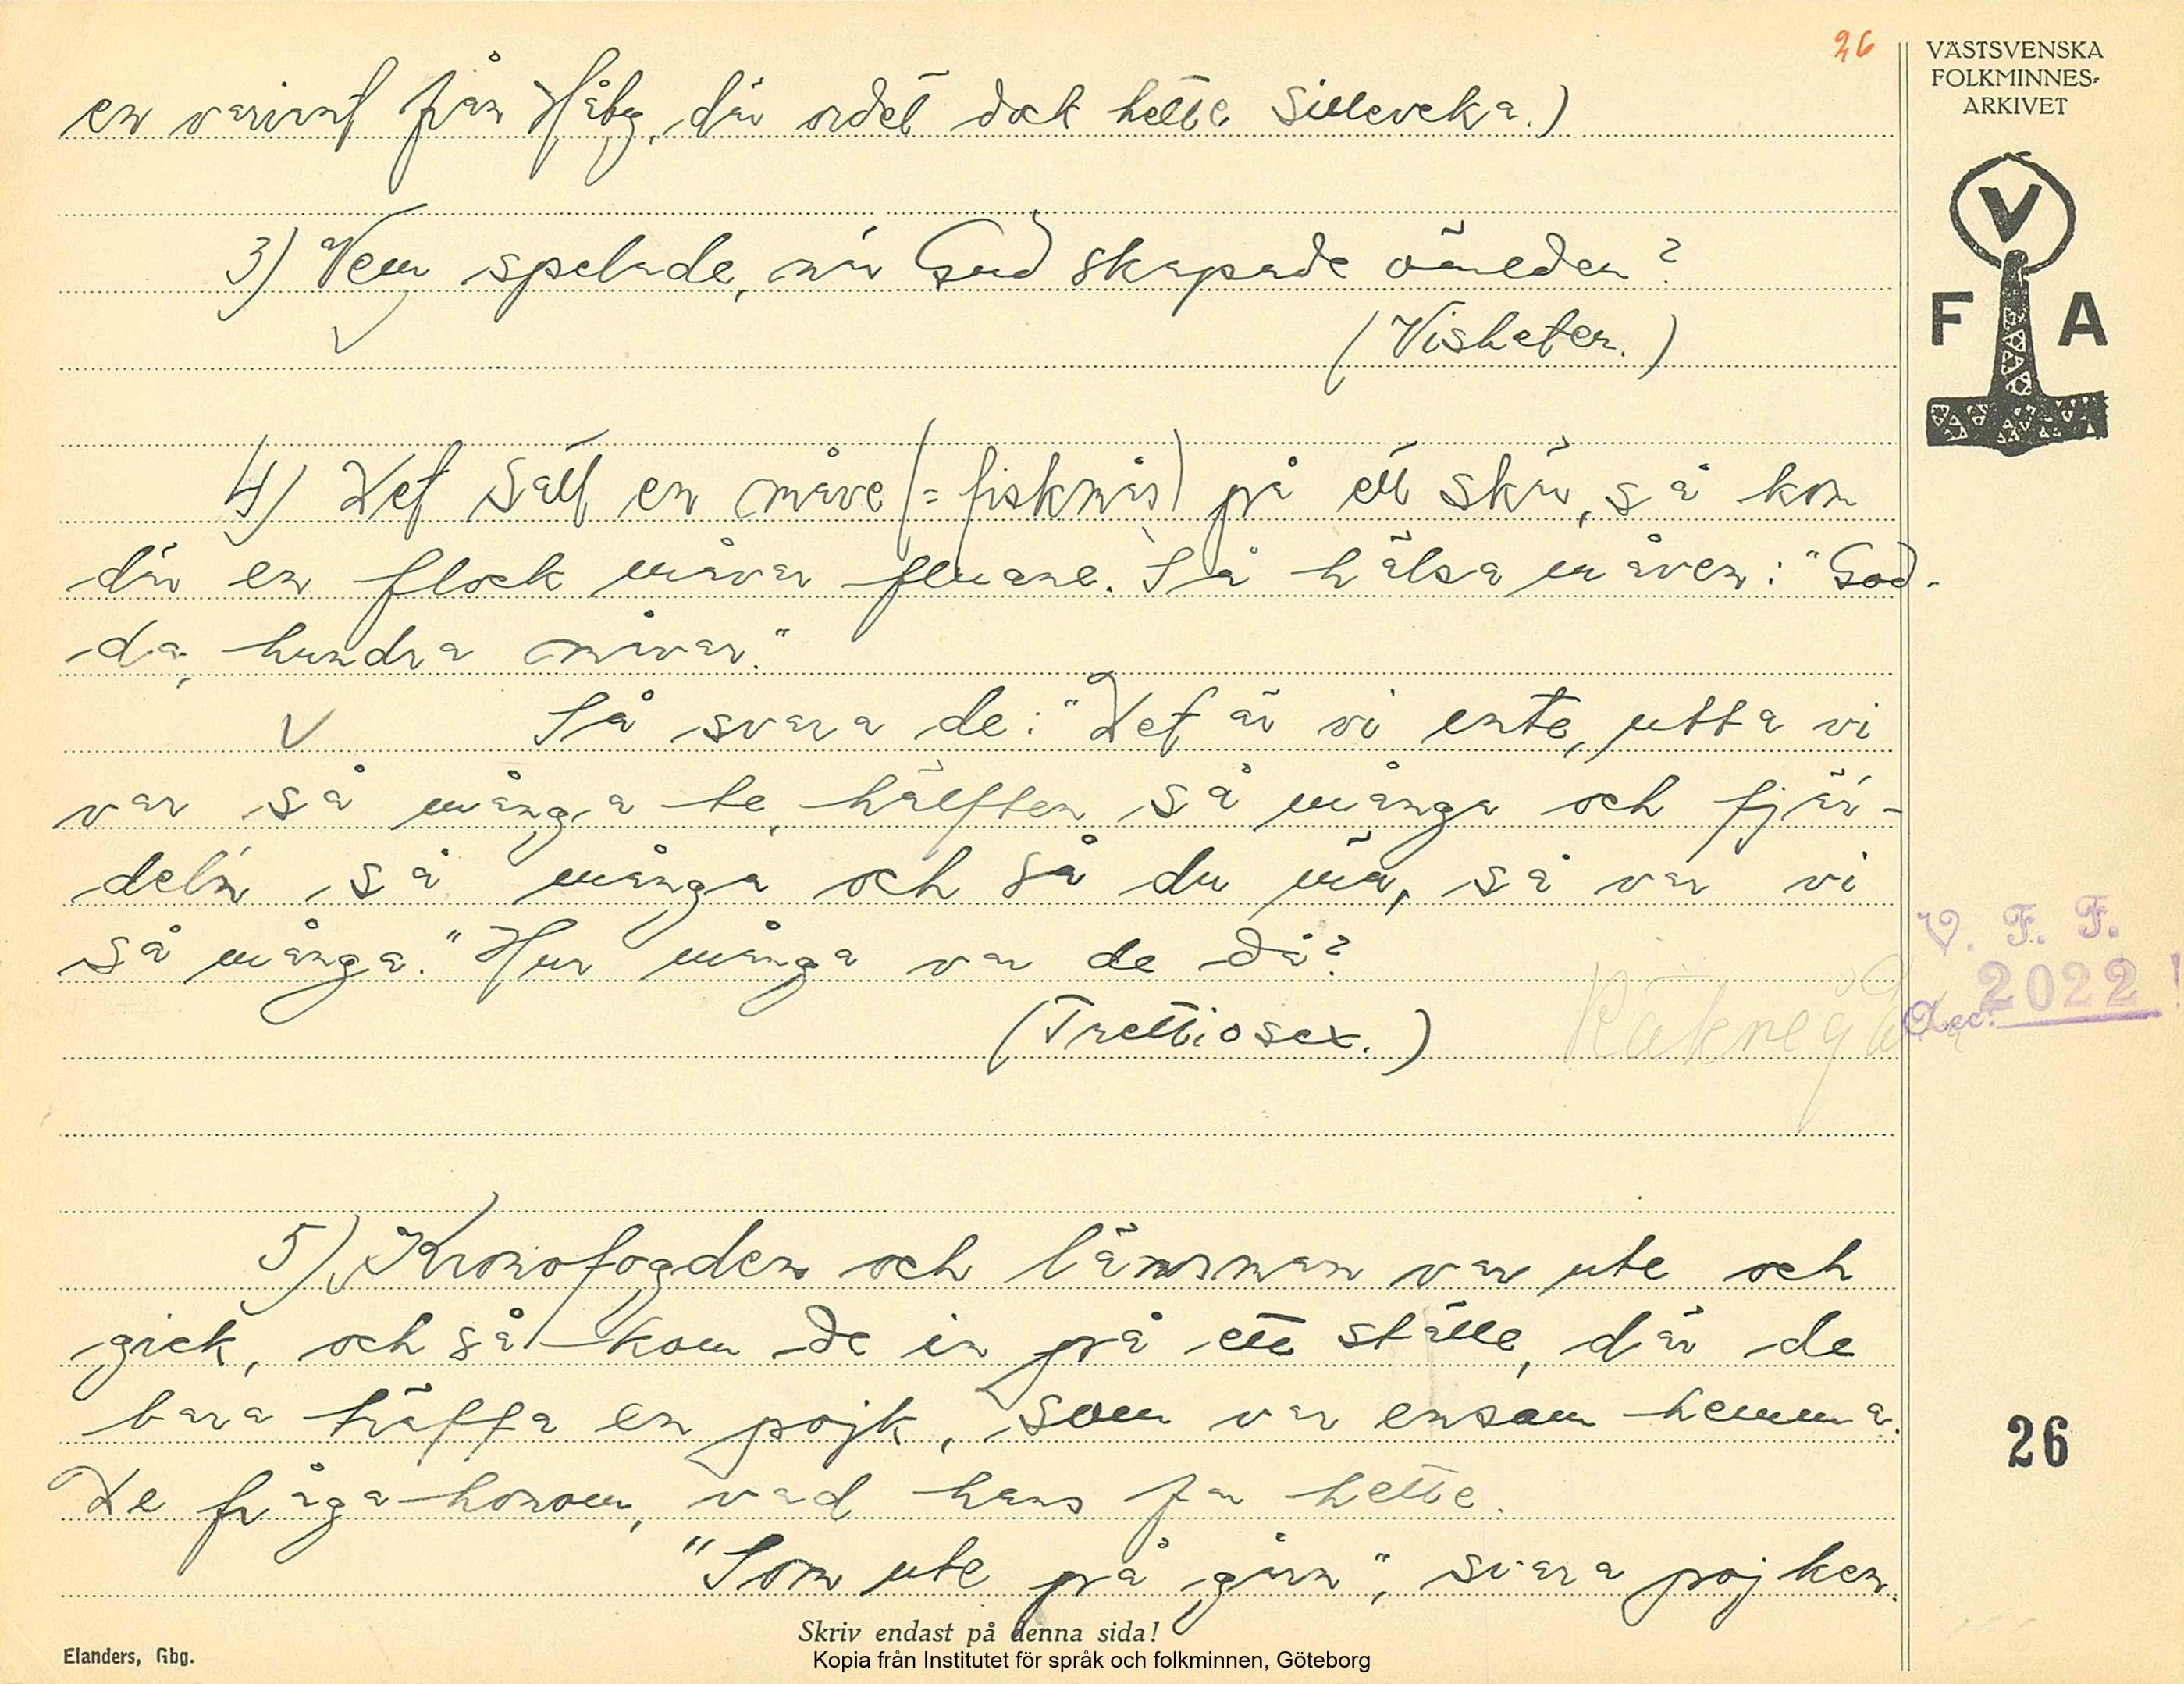 26
VÄSTSVENSKA
FOLKMINNES-
ARKIVET
V
F A
en variant från Håby, där ordet dock hette Silleveka.)
3) Vem spelade, när Gud skapade världen?
(Visheten.)
4) Det satt en måve (= fiskmås) på ett skär, så kom
där en flock måvar fluane. Så hälsa måven: "God-
da, hundra måvar."
Så svara de: "Det är vi ente, utta vi
var så många te, hälften så många och fjär-
deln så många och så du mä, så var vi
så många." Hur många var de då?
(Trettiosex.)
Räknegåta
V. F. F.
Acc: 2022
5) Kronofogden och länsman var ute och
gick, och så kom de in på ett ställe, där de
bara träffa en pojk, som var ensam hemma.
De fråga honom, vad hans far hette.
"Som ute på gårn", svara pojken.
26
Skriv endast på denna sida!
Elanders, Gbg.
Kopia från Institutet för språk och folkminnen, Göteborg